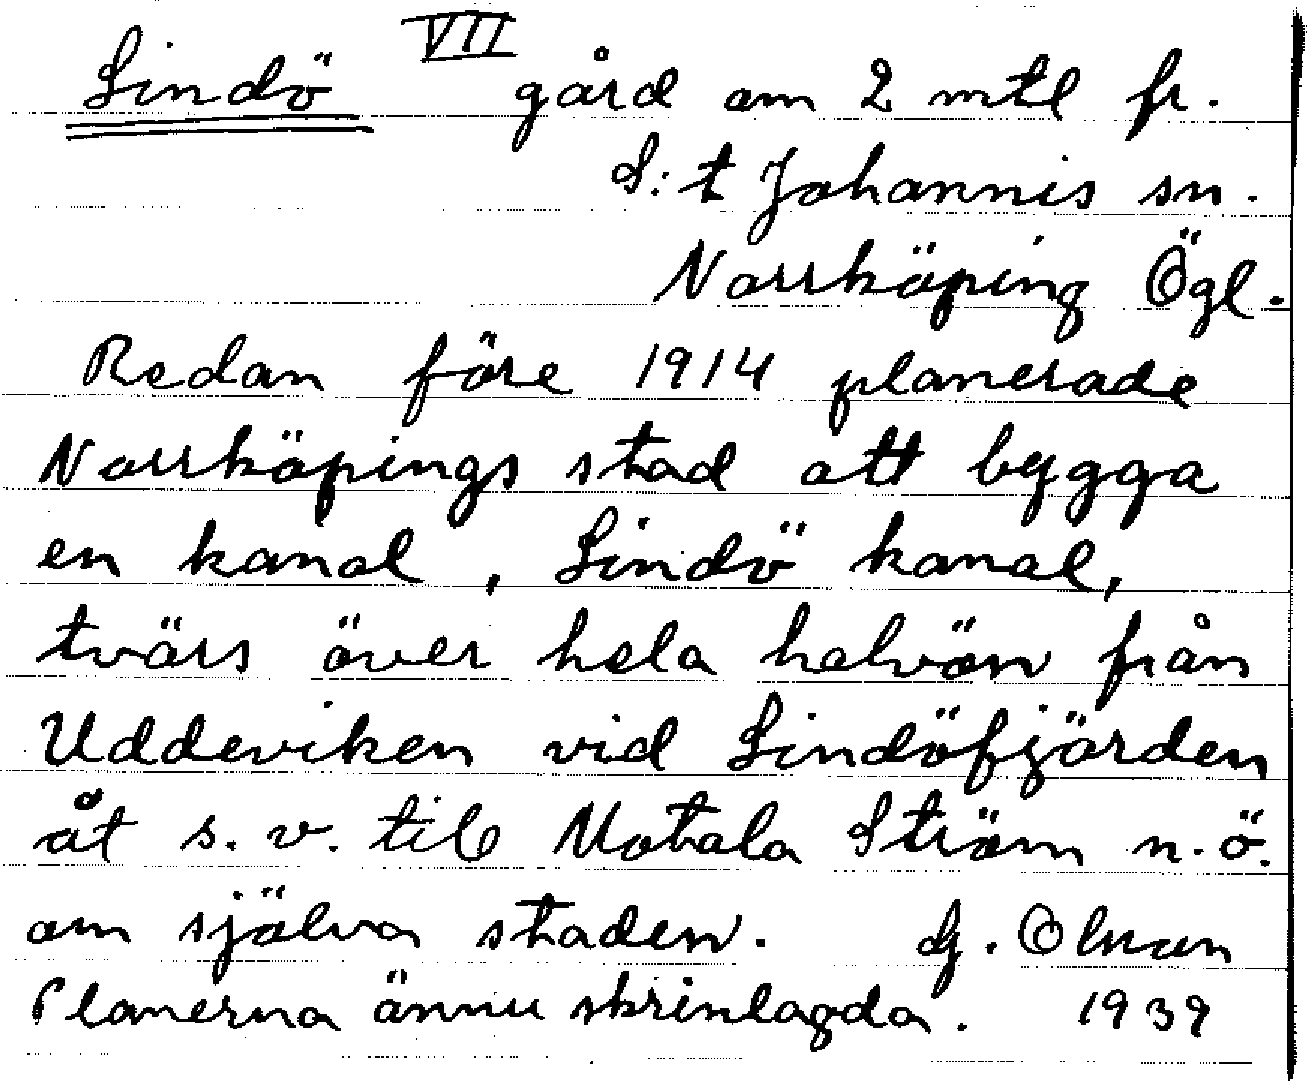 Lindö VII gård om 2 mtl fr.
S:t Johannis sn.
Norrköping Ögl.
Redan före 1914 planerade
Norrköpings stad att bygga
en kanal, Lindö kanal,
tvärs över hela halvön från
Uddeviken vid Lindöfjärden
åt s.v. till Motala Ström n.ö.
om själva staden. G. Olman
Planerna ännu skrinlagda. 1939